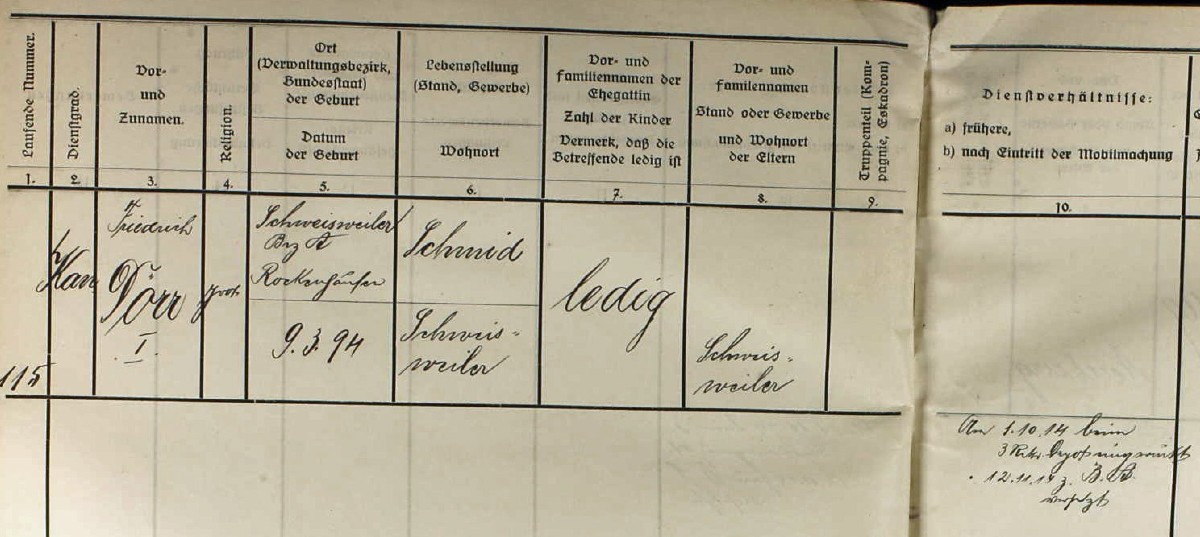 Laufende Nummer.
Dienstgrad.
Vor-
und
Zunamen.
Religion.
Ort
(Verwaltungsbezirk,
Bundesstaat)
der Geburt
Datum
der Geburt
Lebensstellung
(Stand, Gewerbe)
Wohnort
Vor- und
familiennamen der
Ehegattin
Zahl der Kinder
Vermerk, daß die
Betreffende ledig ist
Vor- und
familennamen
Stand oder Gewerbe
und Wohnort
der Eltern
Truppenteil (Kom-
pagnie, Eskadron)
Dienstverhältnisse:
a) frühere,
b) nach Eintritt der Mobilmachung
1. 2. 3. 4. 5. 6. 7. 8. 9. 10.
115
Kan
Friedrich
Dörr
I.
prot.
Schweisweiler
Bez A
Rockenhausen
9.3.94
Schmid
Schweis-
weiler
ledig
Schweis-
weiler
Am 1.10.14 beim
3 Rekr. Depot
12.11.14 z.
versetzt